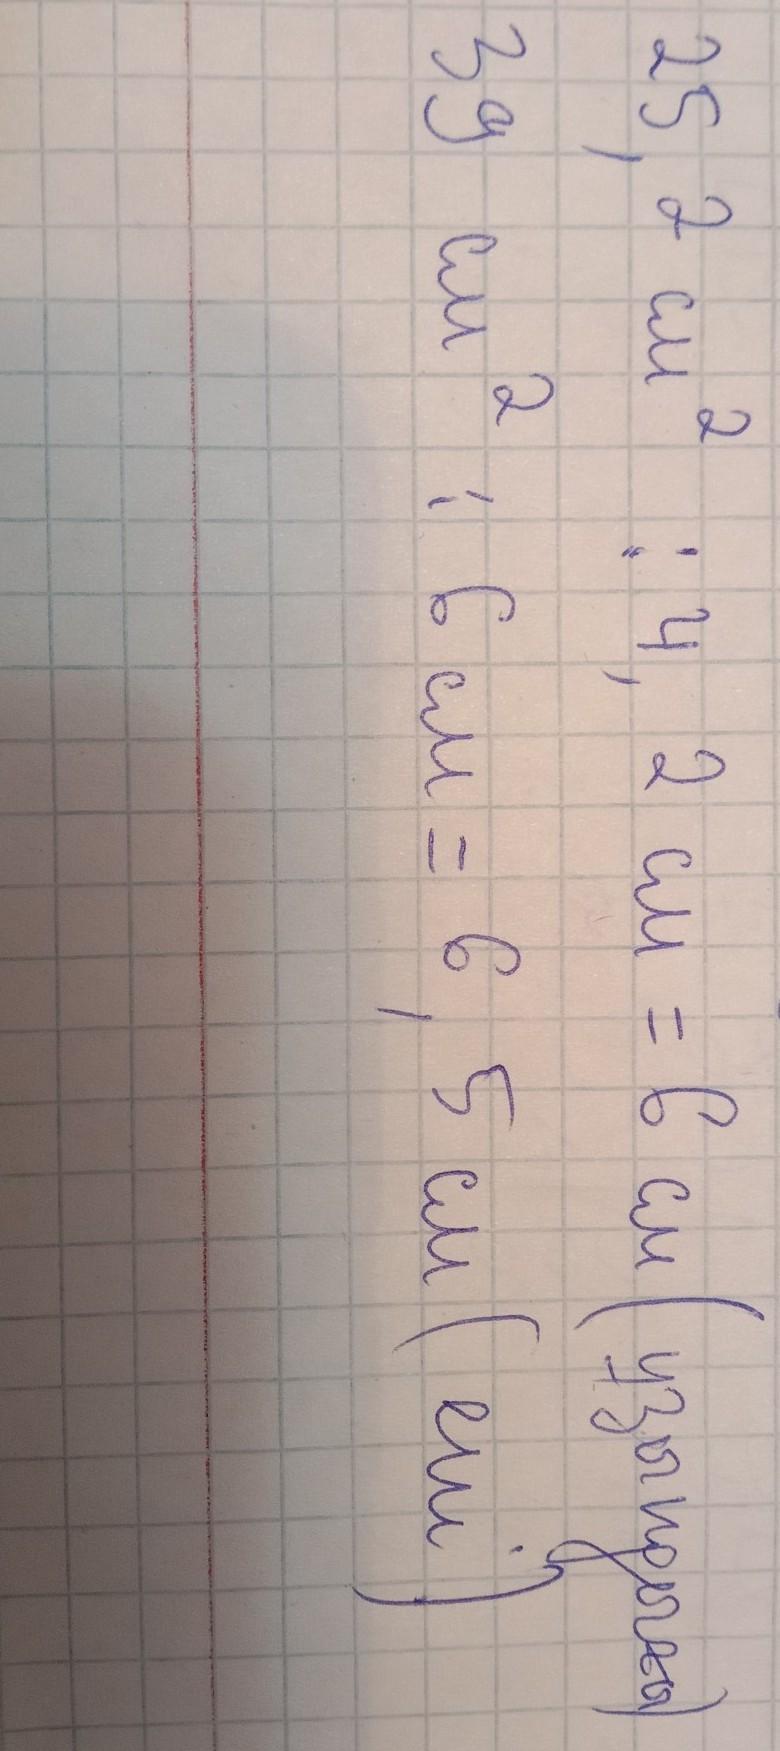 25,2 см² : 4,2 см = 6 см (ұзындығы)
39 см² : 6 см = 6,5 см (ені)